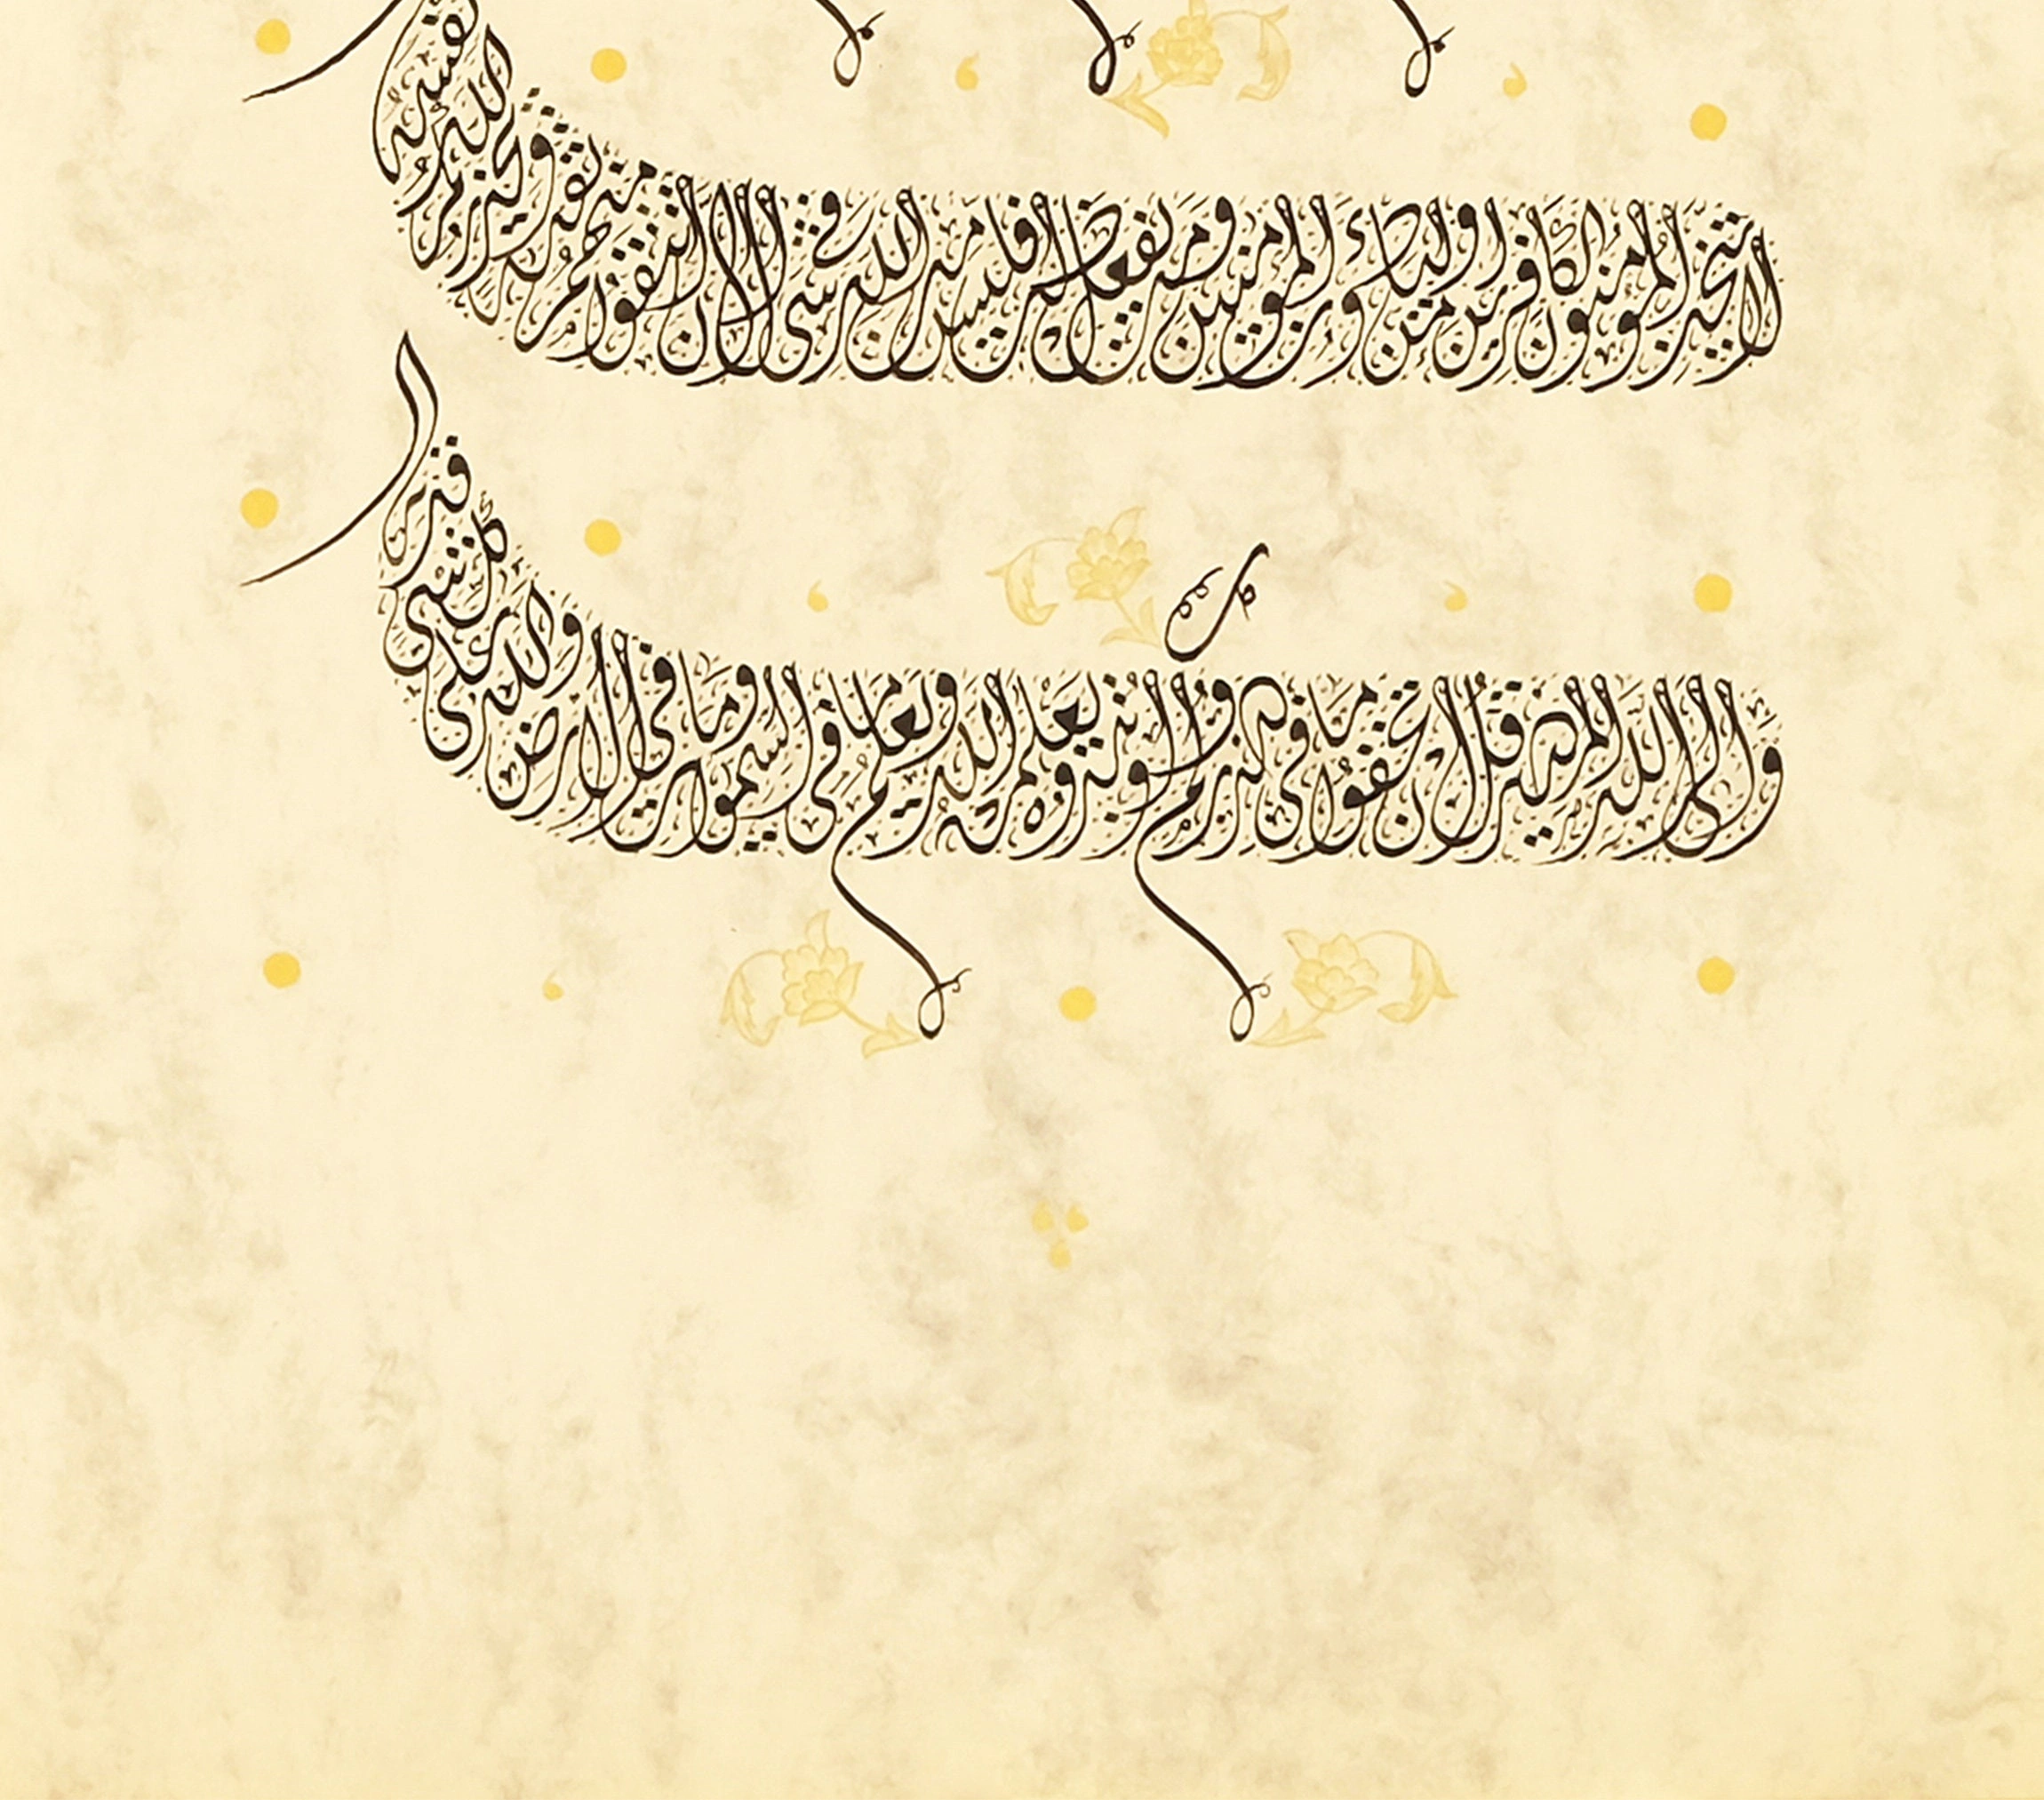 لا يتخذ المؤمنون الكافرين أولياء من دون المؤمنين ومن يفعل ذلك فليس من الله في شيء إلا أن تتقوا منهم تقىة ويحذركم الله نفسه
وإلى الله المصير قل إن تخفوا ما في صدوركم أو تبدوه يعلمه الله ويعلم ما في السموات وما في الأرض والله على كل شيء قدير